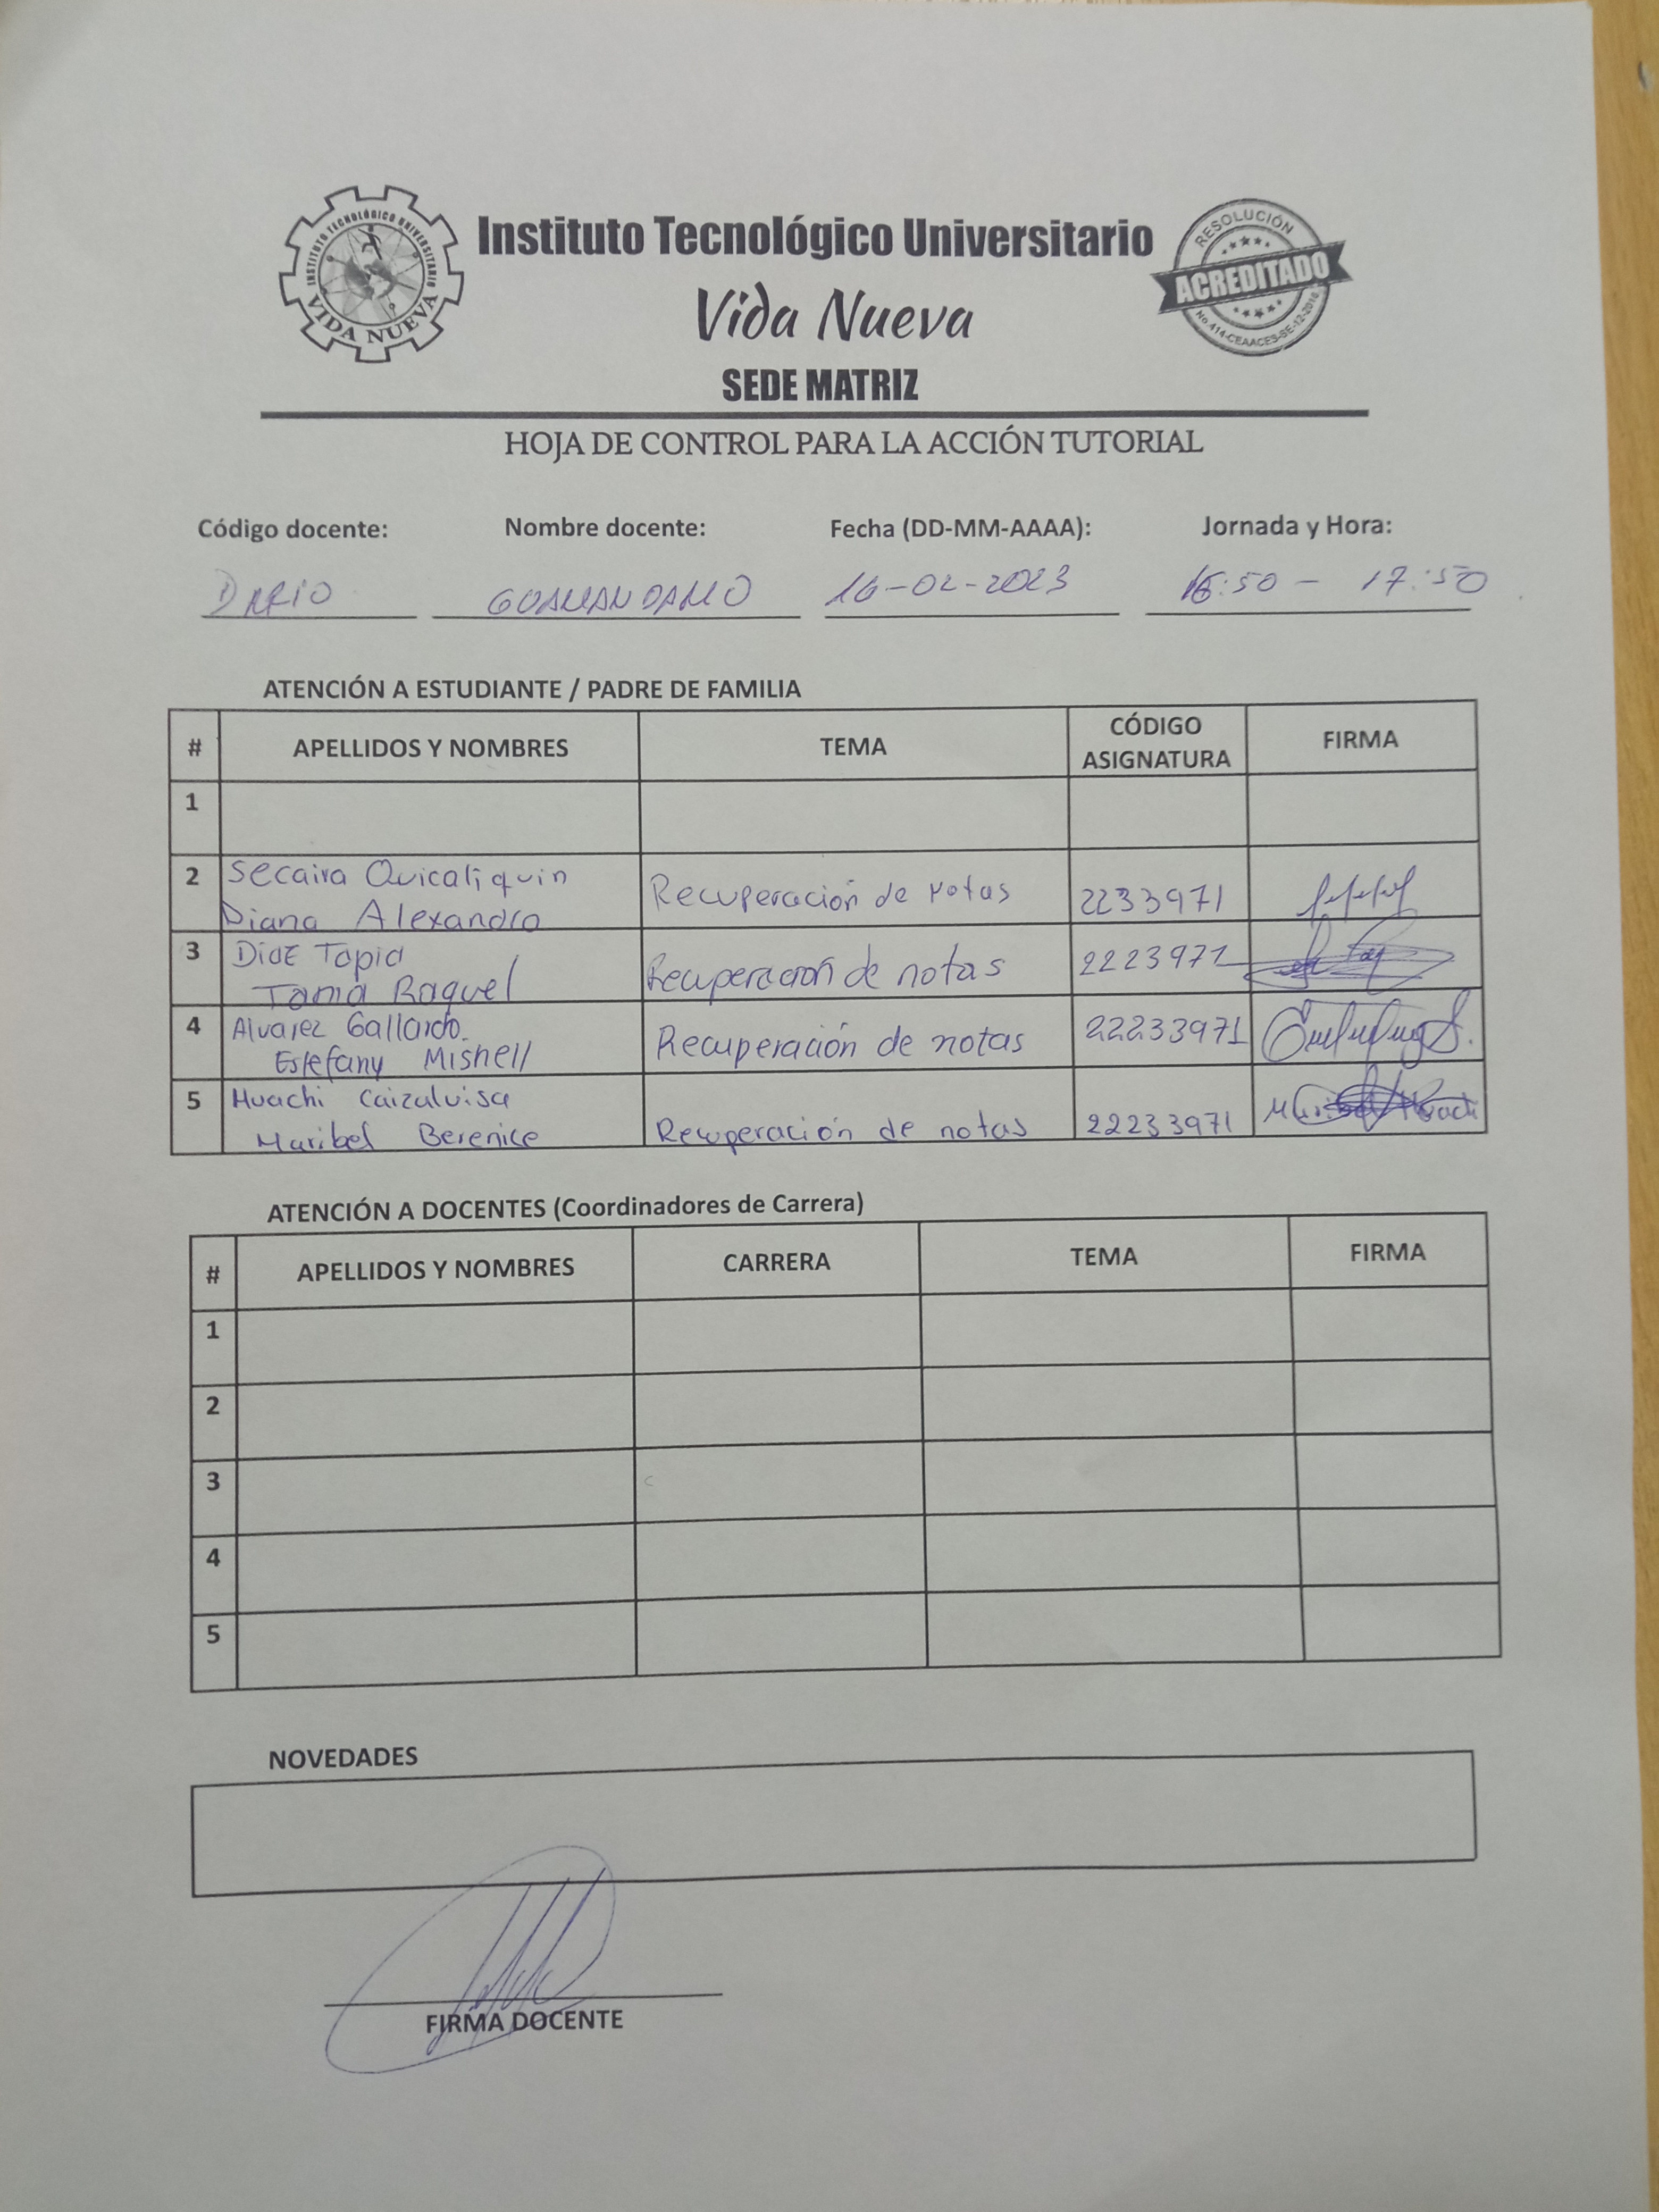 INSTITUTO TECNOLÓGICO UNIVERSITARIO
VIDA NUEVA
Instituto Tecnológico Universitario
Vida Nueva
SEDE MATRIZ
RESOLUCIÓN
ACREDITADO
No.414-CEAACES-SE-12-2016
HOJA DE CONTROL PARA LA ACCIÓN TUTORIAL
Código docente: Nombre docente: Fecha (DD-MM-AAAA): Jornada y Hora:
DARIO GUAMANDAMO 16-02-2023 16:50 - 17:50
ATENCIÓN A ESTUDIANTE / PADRE DE FAMILIA
# APELLIDOS Y NOMBRES TEMA CÓDIGO ASIGNATURA FIRMA
1
2 Secaira Quicaliquin Diana Alexandra Recuperación de notas 2233971
3 Diaz Tapia Tania Raquel Recuperación de notas 2223971
4 Alvarez Gallardo. Estefany Mishell Recuperación de notas 22233971
5 Huachi Caizaluisa Maribel Berenice Recuperación de notas 22233971
ATENCIÓN A DOCENTES (Coordinadores de Carrera)
# APELLIDOS Y NOMBRES CARRERA TEMA FIRMA
1
2
3
4
5
NOVEDADES
FIRMA DOCENTE